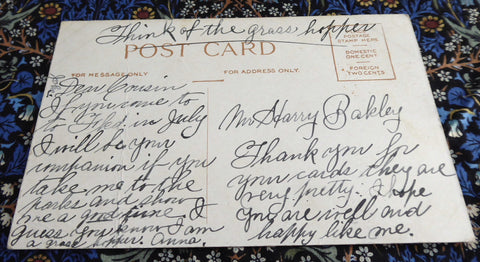 Think of the grass hopper
POST CARD
POSTAGE
STAMP HERE
DOMESTIC
ONE CENT
FOREIGN
TWO CENTS
FOR MESSAGE ONLY
FOR ADDRESS ONLY.
Dear Cousin
If you come to
to in July
I will be your
companion if you
take me to the
parks and show
me a good time. I
guess you know I am
a grass hopper. Anna.
Mr Harry Rakley
Thank you for
your cards they are
very pretty. I hope
you are well and
happy like me.